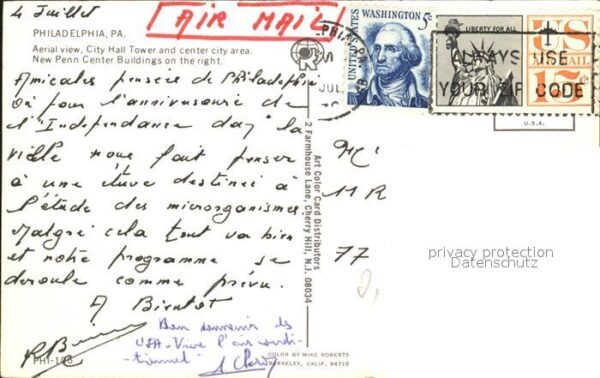 4 Juillet
AIR MAIL
PHILADELPHIA, PA.
Aerial view, City Hall Tower and center city area.
New Penn Center Buildings on the right.
Amicales pensées de Philadelphie
où pour l'anniversaire de
l'Independance day la
ville nous fait penser
à une étuve destinée à
l'étude des microorganismes
Malgré cela tout va bien
et notre programme se
deroule comme prévu.
A Bientot
Bon souvenir des
USA - Vive l'air condi-
tionné!
PHI-108
Art Color Card Distributors
2 Farmhouse Lane, Cherry Hill, N.J. 08034
COLOR BY MIKE ROBERTS
BERKELEY, CALIF. 94710
UNITED STATES
WASHINGTON 5c
LIBERTY FOR ALL
US
AIR MAIL
15c
JUL
ALWAYS USE
YOUR ZIP CODE
U.S.A.
77
privacy protection
Datenschutz